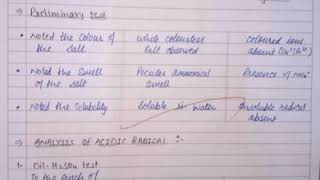 ⇒ Preliminary test
• Noted the Colour of the Salt
White colourless salt observed
Coloured ions absent (Cu²⁺, Fe³⁺)
• Noted the Smell of the Salt
Peculiar ammonical smell
Presence of NH₄⁺
• Noted the Solubility
Soluble in water
Insoluble radical absent
⇒ ANALYSIS OF ACIDIC RADICAL :-
1. Dil-H₂SO₄ test
To two pinch of